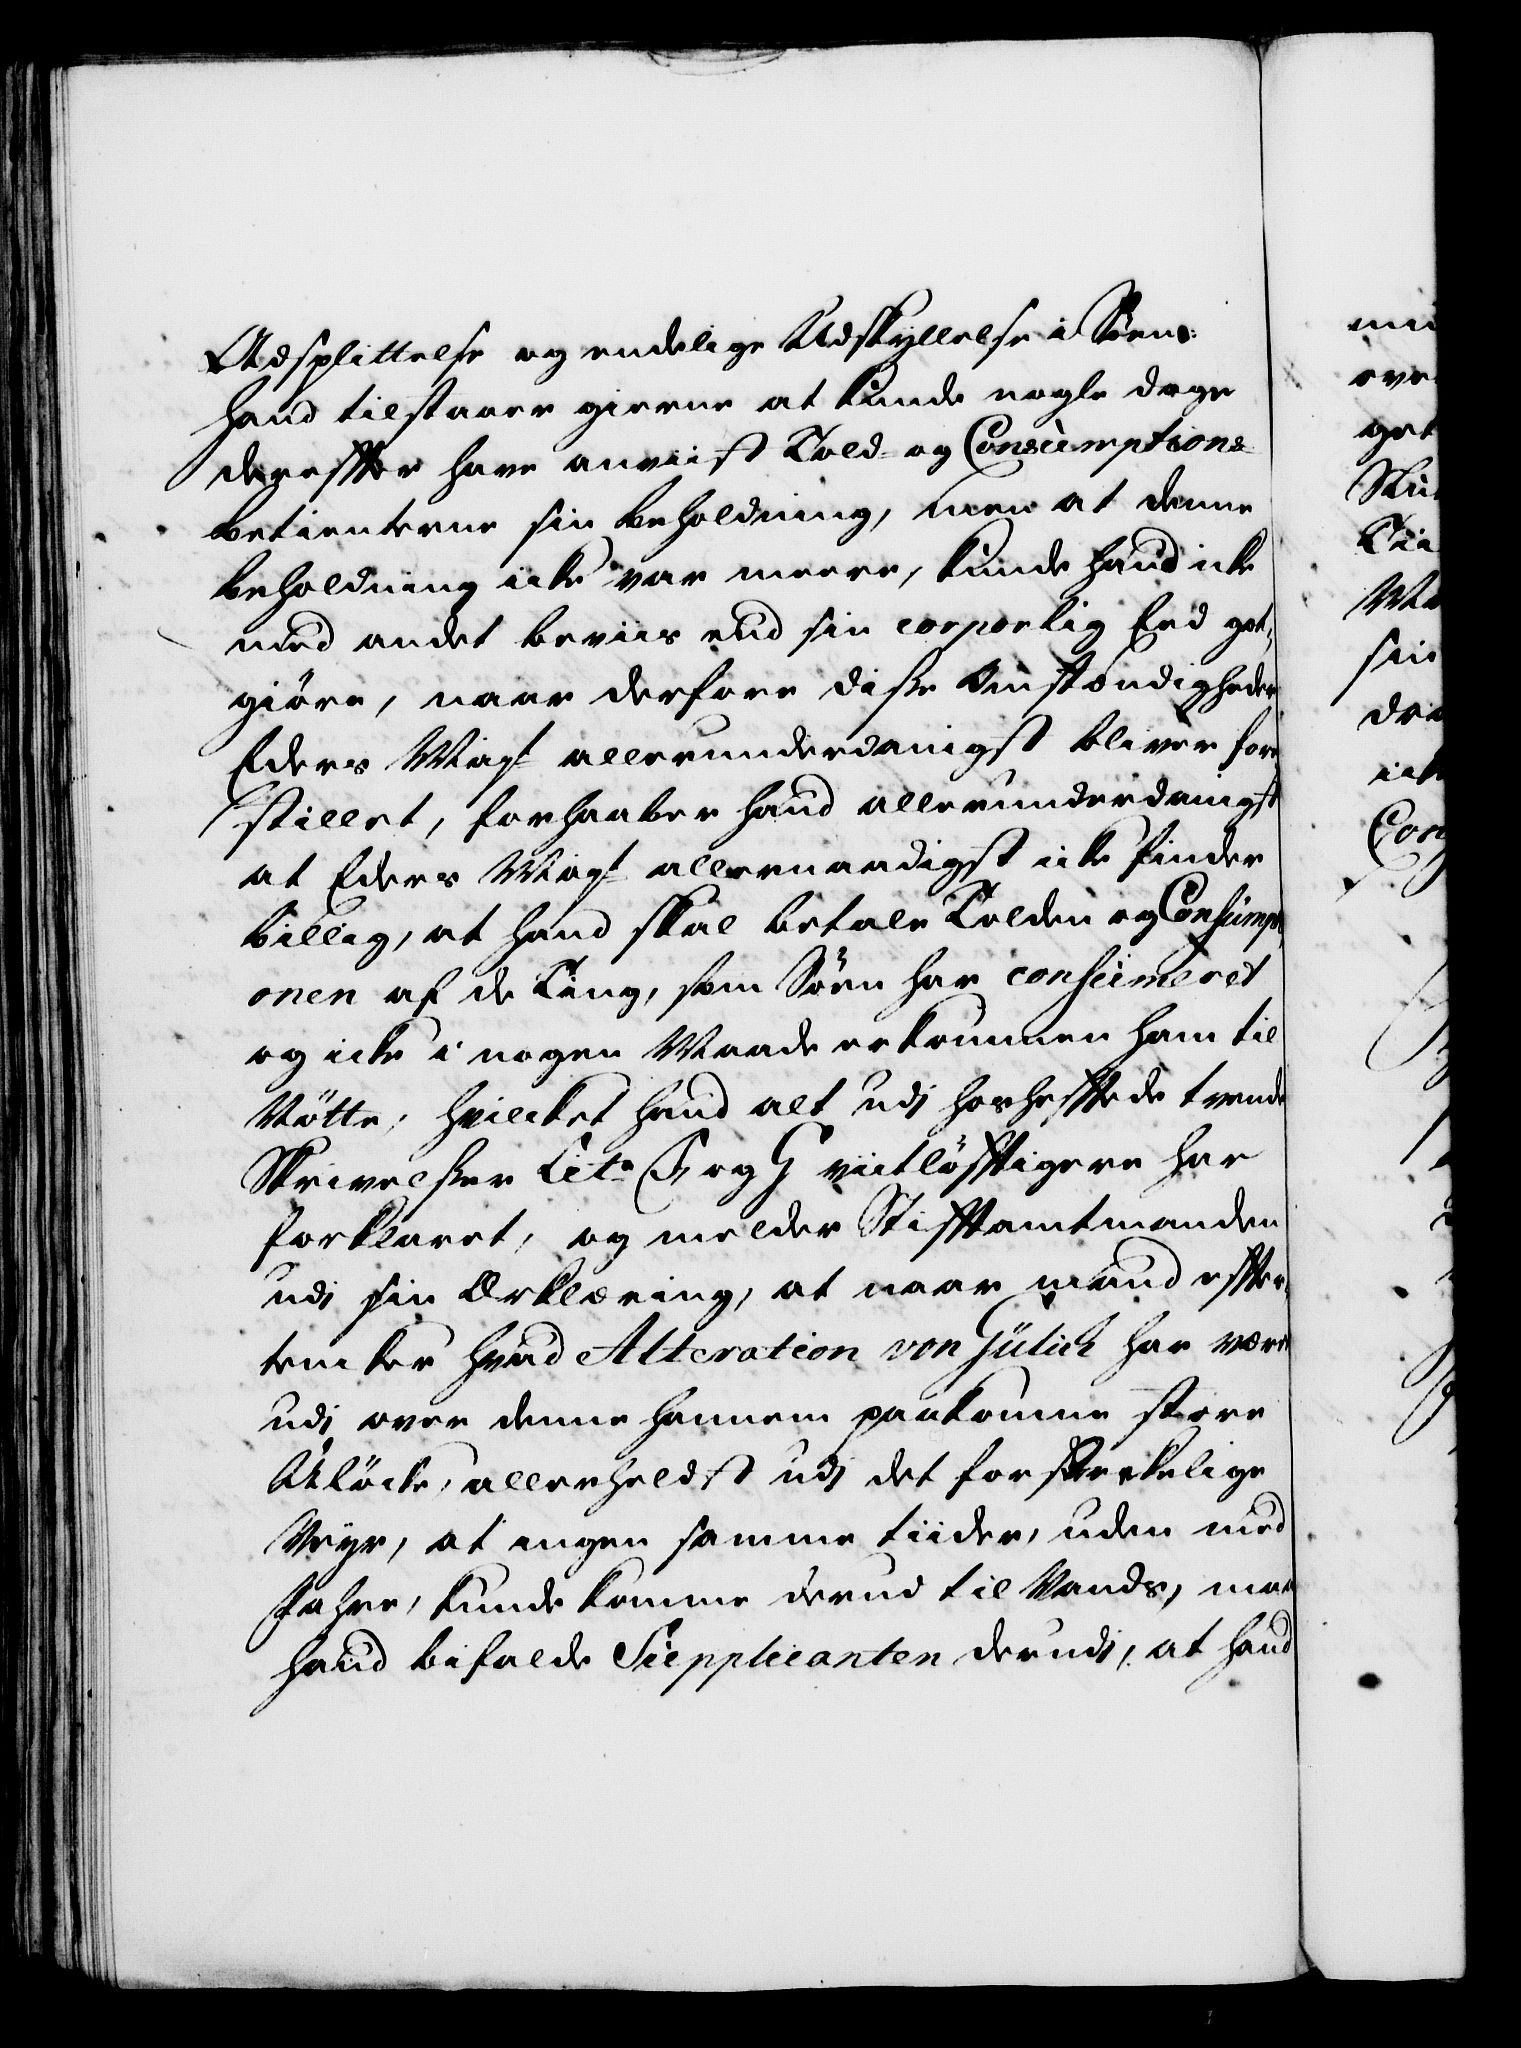 Adsplittelse og endelige Udskyllelse i Söens:
hand tilstaaer gierne at kunde nogle dage
dereffter have anviist Told- og Consumptions
betienterne sin beholdning, men at denne
beholdning icke var meere, kunde hand icke
med andet beviis end sin corporlig Eed got,
giöre, naar derfore diße Omstændigheder
Eders Mayt allerunderdanigst bliver fore
stillet, forhaaber hand allerunderdanigst
at Eders Mayt allernaadigst icke finder
billig, at hand skal betale Tolden og Consumpti
onen af de Ting, som Söen har consumeret
og icke i nogen Maade erkommen ham til
Nötte, hvilcket hand alt udj hoshefftede tvende
Skrivelser Lit. F og G viitlöfftigere har
forklaret, og melder Stifftamtmanden
udi sin Erklæring, at naar mand effter,
tencker hvad Alteration von Gülich har være
udj over denne hannem paakomne store
Ulöcke, allerheldst udj det forskreckelige
Veyr, at ingen samme tiider, uden med
Fahre, kunde komme derud til Vands, maa
hand bifalde Supplicanten derudj, at hand